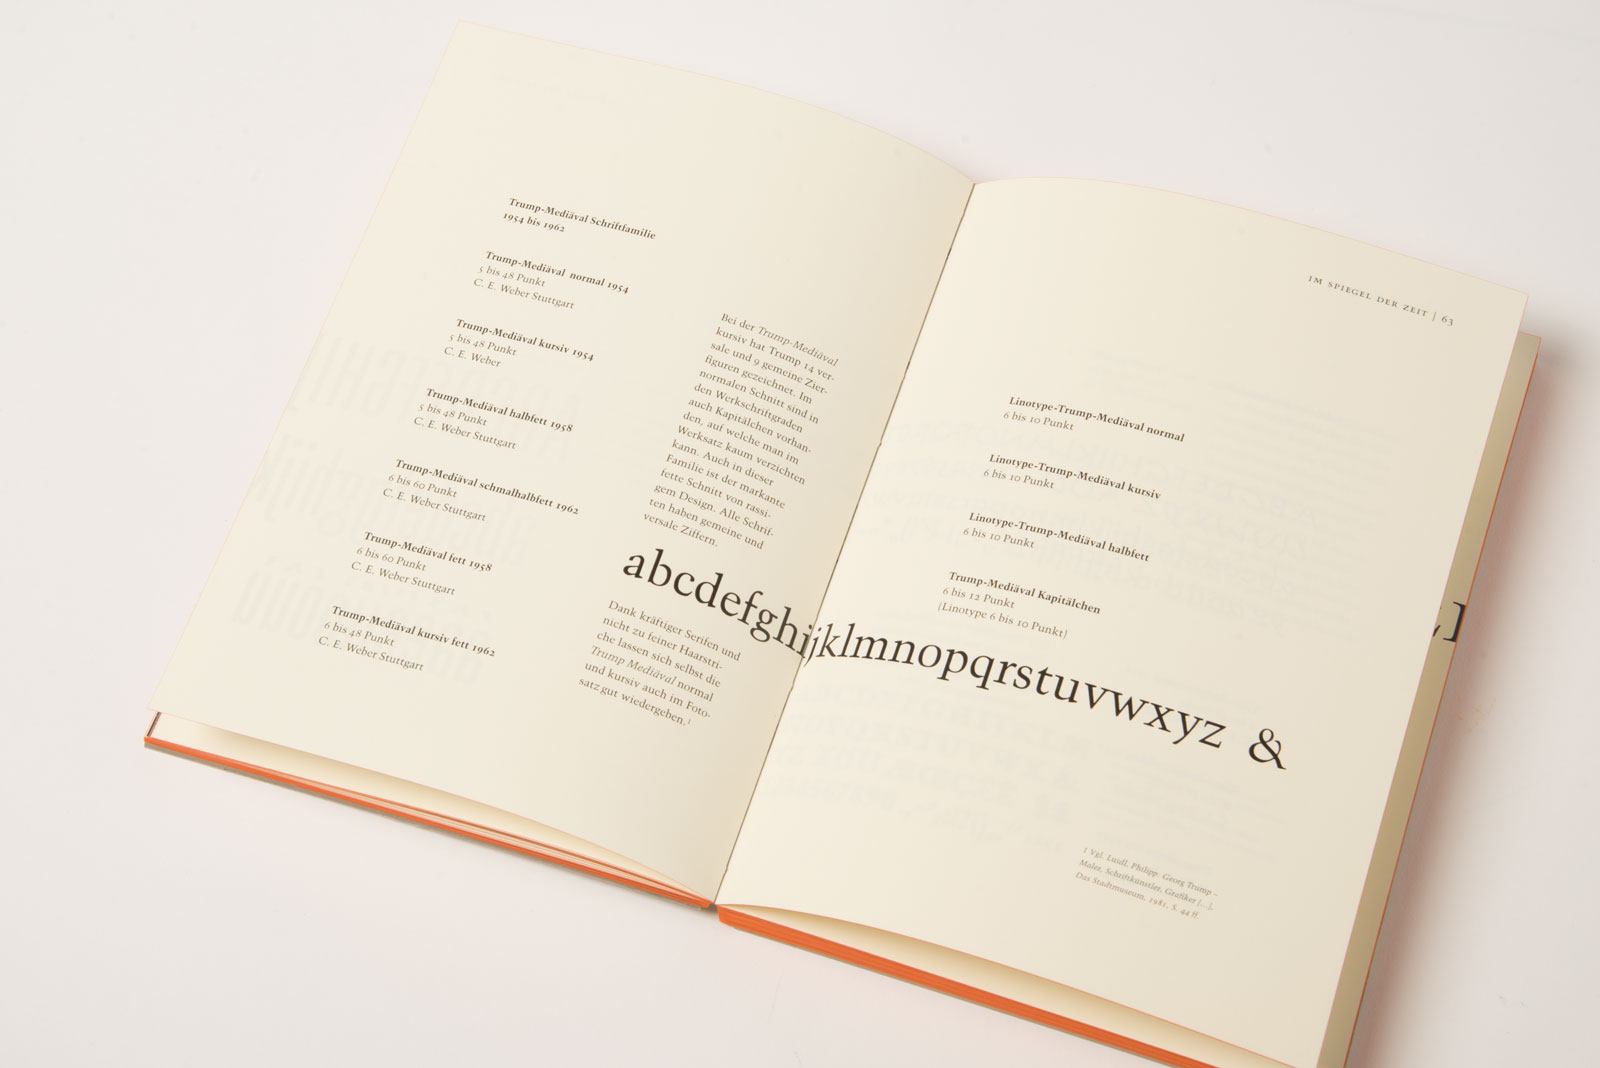 Trump-Mediäval Schriftfamilie
1954 bis 1962
Trump-Mediäval normal 1954
5 bis 48 Punkt
C. E. Weber Stuttgart
Trump-Mediäval kursiv 1954
5 bis 48 Punkt
C. E. Weber
Trump-Mediäval halbfett 1958
5 bis 48 Punkt
C. E. Weber Stuttgart
Trump-Mediäval schmalhalbfett 1962
6 bis 60 Punkt
C. E. Weber Stuttgart
Trump-Mediäval fett 1958
6 bis 60 Punkt
C. E. Weber Stuttgart
Trump-Mediäval kursiv fett 1962
6 bis 48 Punkt
C. E. Weber Stuttgart
Bei der Trump-Mediäval
kursiv hat Trump 14 ver-
sale und 9 gemeine Zier-
figuren gezeichnet. Im
normalen Schnitt sind in
den Werkschriftgraden
auch Kapitälchen vorhan-
den, auf welche man im
Werksatz kaum verzichten
kann. Auch in dieser
Familie ist der markante
fette Schnitt von rassi-
gem Design. Alle Schrif-
ten haben gemeine und
versale Ziffern.
abcdefghijklmnopqrstuvwxyz &
Dank kräftiger Serifen und
nicht zu feiner Haarstri-
che lassen sich selbst die
Trump Mediäval normal
und kursiv auch im Foto-
satz gut wiedergeben.¹
IM SPIEGEL DER ZEIT | 63
Linotype-Trump-Mediäval normal
6 bis 10 Punkt
Linotype-Trump-Mediäval kursiv
6 bis 10 Punkt
Linotype-Trump-Mediäval halbfett
6 bis 10 Punkt
Trump-Mediäval Kapitälchen
6 bis 12 Punkt
(Linotype 6 bis 10 Punkt)
1 Vgl. Luidl, Philipp: Georg Trump –
Maler, Schriftkünstler, Grafiker [...].
Das Stadtmuseum, 1981, S. 44 ff.